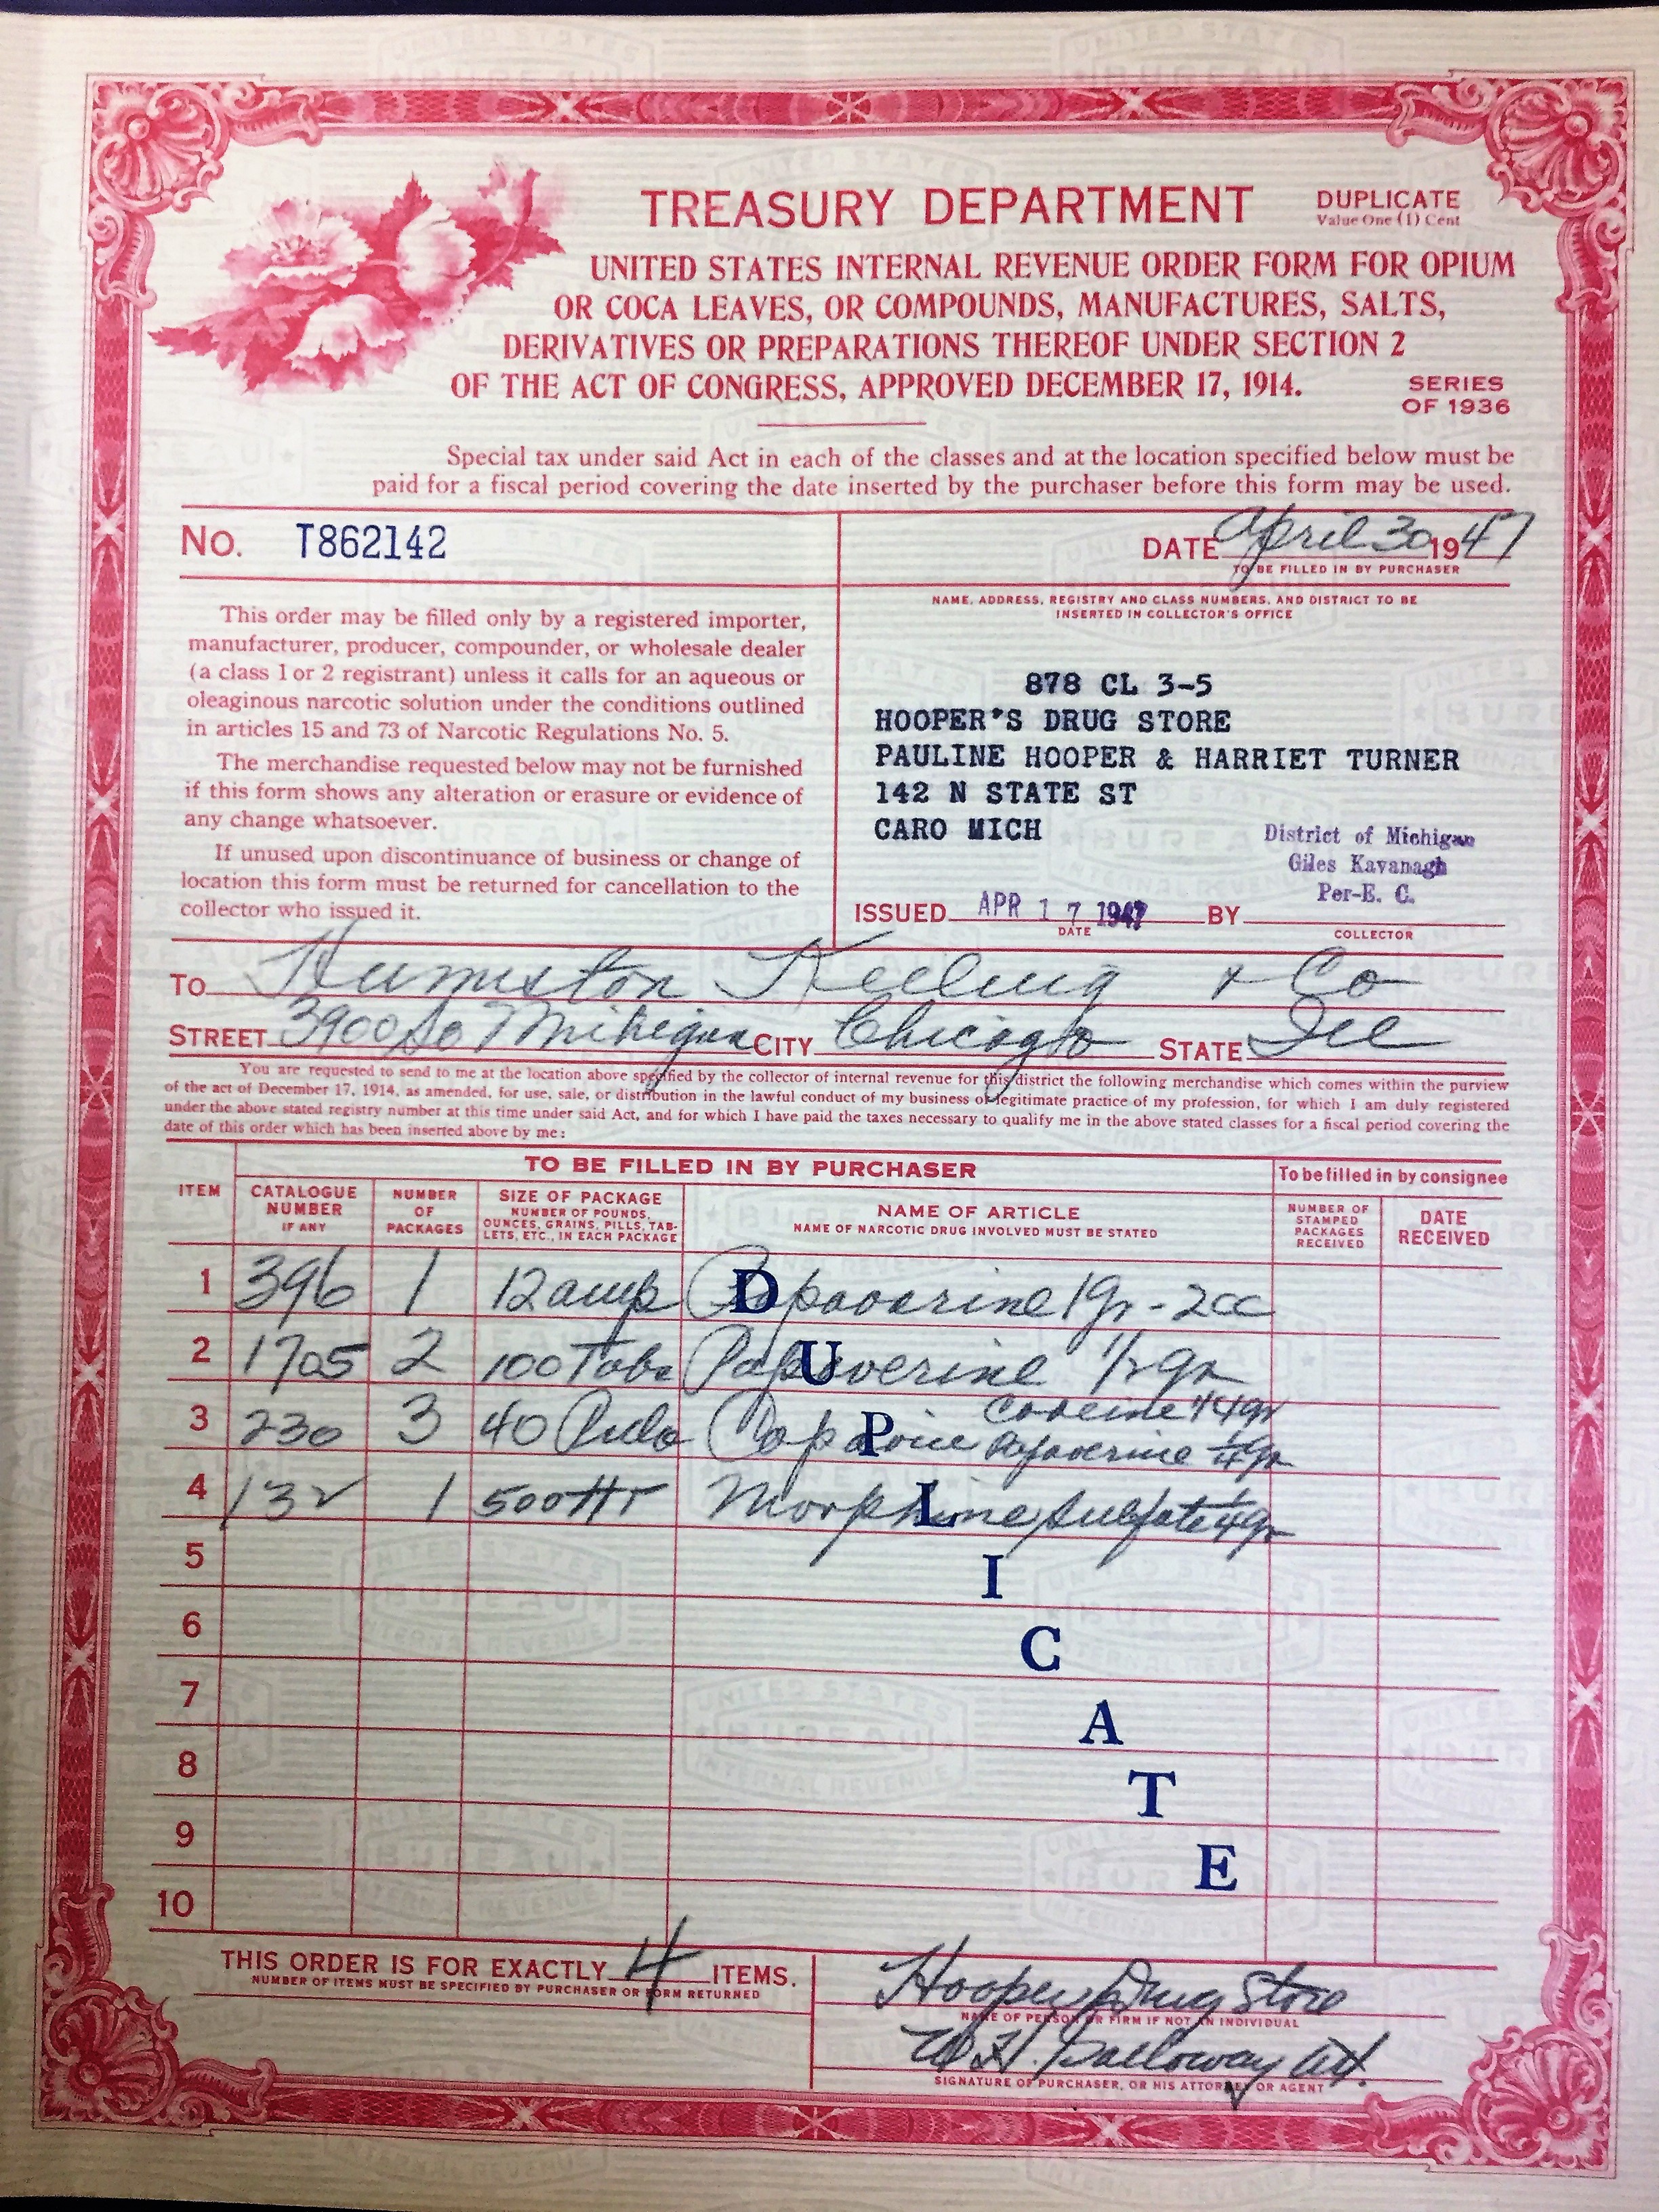 TREASURY DEPARTMENT
DUPLICATE
Value One (1) Cent
UNITED STATES INTERNAL REVENUE ORDER FORM FOR OPIUM
OR COCA LEAVES, OR COMPOUNDS, MANUFACTURES, SALTS,
DERIVATIVES OR PREPARATIONS THEREOF UNDER SECTION 2
OF THE ACT OF CONGRESS, APPROVED DECEMBER 17, 1914.
SERIES
OF 1936
Special tax under said Act in each of the classes and at the location specified below must be
paid for a fiscal period covering the date inserted by the purchaser before this form may be used.
No. T862142
DATE April 30 1947
TO BE FILLED IN BY PURCHASER
This order may be filled only by a registered importer,
manufacturer, producer, compounder, or wholesale dealer
(a class 1 or 2 registrant) unless it calls for an aqueous or
oleaginous narcotic solution under the conditions outlined
in articles 15 and 73 of Narcotic Regulations No. 5.
The merchandise requested below may not be furnished
if this form shows any alteration or erasure or evidence of
any change whatsoever.
If unused upon discontinuance of business or change of
location this form must be returned for cancellation to the
collector who issued it.
NAME, ADDRESS, REGISTRY AND CLASS NUMBERS, AND DISTRICT TO BE
INSERTED IN COLLECTOR'S OFFICE
878 CL 3-5
HOOPER'S DRUG STORE
PAULINE HOOPER & HARRIET TURNER
142 N STATE ST
CARO MICH
District of Michigan
Giles Kavanagh
Per-E. C.
ISSUED APR 17 1947 BY
DATE
COLLECTOR
TO Humiston Keeling & Co
STREET 3900 So Mihigan CITY Chicago STATE Ill
You are requested to send to me at the location above specified by the collector of internal revenue for this district the following merchandise which comes within the purview
of the act of December 17, 1914, as amended, for use, sale, or distribution in the lawful conduct of my business or legitimate practice of my profession, for which I am duly registered
under the above stated registry number at this time under said Act, and for which I have paid the taxes necessary to qualify me in the above stated classes for a fiscal period covering the
date of this order which has been inserted above by me:
TO BE FILLED IN BY PURCHASER
To be filled in by consignee
ITEM
CATALOGUE
NUMBER
IF ANY
NUMBER
OF
PACKAGES
SIZE OF PACKAGE
NUMBER OF POUNDS,
OUNCES, GRAINS, PILLS, TAB-
LETS, ETC., IN EACH PACKAGE
NAME OF ARTICLE
NAME OF NARCOTIC DRUG INVOLVED MUST BE STATED
NUMBER OF
STAMPED
PACKAGES
RECEIVED
DATE
RECEIVED
1 396 1 12 amp Papavarine 1gr - 2cc
2 1705 2 100 Tabs Papaverine 1/2 gr
3 230 3 40 Codeine 1/4 gr
Papaverine 1/4 gr
4 132 1 500 HT Morphine Sulfate 1/4 gr
5
6
7
8
9
10
D
U
P
L
I
C
A
T
E
THIS ORDER IS FOR EXACTLY 4 ITEMS.
NUMBER OF ITEMS MUST BE SPECIFIED BY PURCHASER OR FORM RETURNED
Hooper Drug Store
NAME OF PERSON OR FIRM IF NOT AN INDIVIDUAL
H. Galloway Att.
SIGNATURE OF PURCHASER, OR HIS ATTORNEY OR AGENT
UNITED STATES
BUREAU
INTERNAL REVENUE